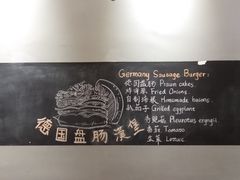 Germany Sausage Burger:
德国盘肠 Prison cakes
炸洋葱 Fried Onions
自制培根 Homemade bacons
扒茄子 Grilled eggplant
Pleurotus eryngii
番茄 Tomato
生菜 Lettuc
德国盘肠漢堡